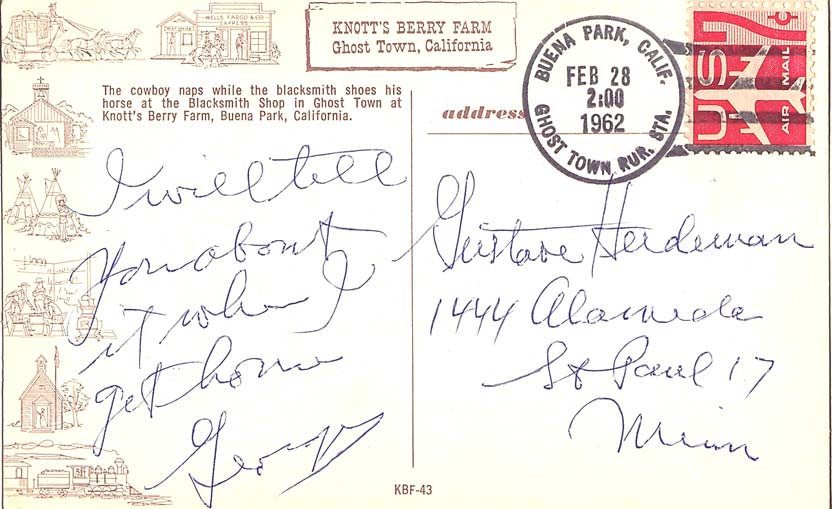 POST OFFICE
WELLS FARGO & CO
EXPRESS
KNOTT'S BERRY FARM
Ghost Town, California
The cowboy naps while the blacksmith shoes his
horse at the Blacksmith Shop in Ghost Town at
Knott's Berry Farm, Buena Park, California.
address
BUENA PARK, CALIF.
FEB 28
2:00
1962
GHOST TOWN RUR. STA.
US
7¢
AIR MAIL
I will tell
You about
it when I
get home
George
Gustave Herdeman
1444 Alameda
St Paul 17
Minn
KBF-43